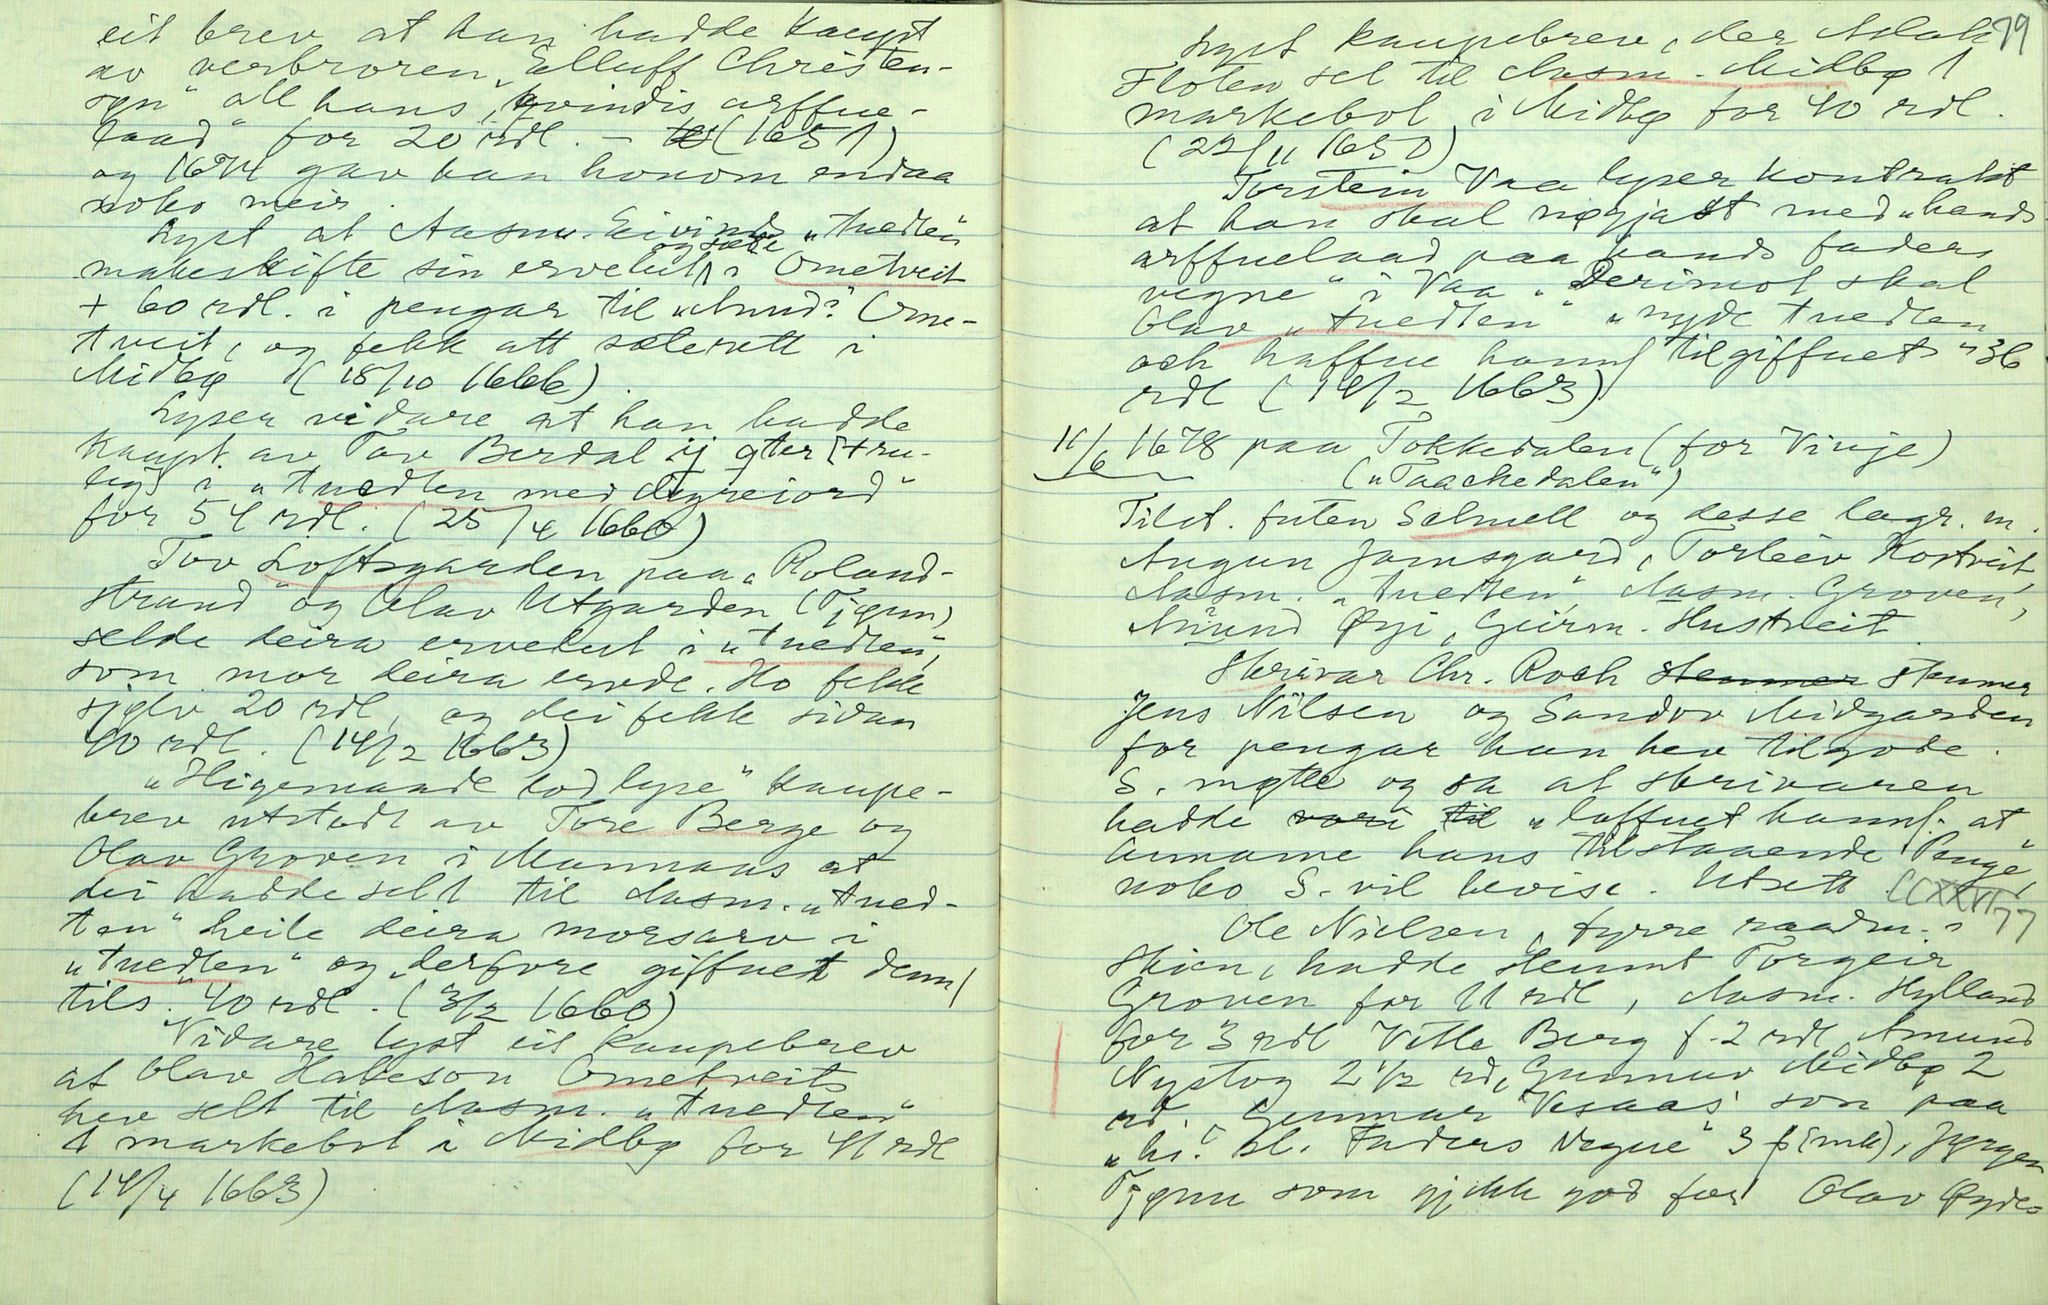 eit brev at han hadde kaupt
av verbroren „Elluff Christen-
søn" all hans „kvindis arffue-
laad" for 20 rdl. – (1651)
og 1674 gav han honom endaa
noko meir.
Lyst at Aasm. Eivinds. „tuedten"
og sæde
makeskifte sin ervelut i Ometveit
+ 60 rdl. i pengar til „Amund" Ome-
tveit, og fekk att sæterett i
Midbø (18/10 1666).
Lyser vidare at han hadde
kaupt av Tov Berdal ij øter [tru-
leg] i „tuedten med digreiord"
for 54 rdl. (25/4 1660)
Tov Loftsgarden paa „Roland-
strand" og Olav Utgarden (Tjønn)
selde deira ervelut i „tuedten",
som mor deira ervde. Ho fekk
sjølv 20 rdl, og dei fekk sidan
40 rdl. (14/2 1663)
„Higemaade lod lyse" kaupe-
brev utstedt av Tore Berge og
Olav Groven i Mannaas at
dei hadde selt til Aasm. „tued-
ten" heile deira morsarv i
„tuedten" og „derfore giffuet dem
tils." 40 rdl. (3/2 1660)
Vidare lyst eit kaupebrev
at Olav Halvson Ometveit
hev selt til Aasm. „tuedten"
1 markebol i Midbø for 41 rdl
(14/4 1663)
79
Lyst kaupebrev, der Aslak
Floten sel til Aasm. Midbø 1
markebol i Midbø for 40 rdl.
(22/11 1650)
Torstein Vaa lyser kontrakt
at han skal nøgjast med „hands
arffuelaad paa hands faders
vegne" i Vaa. Derimot skal
Olav „tuedten" „nyde tuedten
och haffue hannf tilgiffuet" 36
rdl (14/2 1663)
11/6 1678 paa Tokkedalen (for Vinje)
(„Taackedalen")
Tilst. futen Selmell og desse lagr. m.
Augun Jamsgard, Torleiv Kostveit,
Aasm. „tuedten", Aasm. Groven,
Aamund Øyi, Geirm. Hustveit.
Skrivar Chr. Roch stemner stemner
Jens Nilsen og Sandov Midgarden
for pengar han hev tilgode.
S. møtte og sa at skrivaren
hadde vori til „loffuet hannf. at
annamme hans tilstaaende Penge",
noko S. vil bevise. Utsett.
CCXXVI 77
Ole Nielsen, fyrre raadm. i
Skien, hadde stemt Torgeir
Groven for 11 rdl, Aasm. Hylland
for 3 rdl Vetle Berg f. 2 rdl, Amund
Nystog 2 1/2 rd, Gunnuv Midbø 2
rd. Gunnar Vesaas' son paa
„hs. Sl. Faders Vegne" 3 ƒ (mk), Jørgen
Tjønn som gjekk god for Olav Øyde-